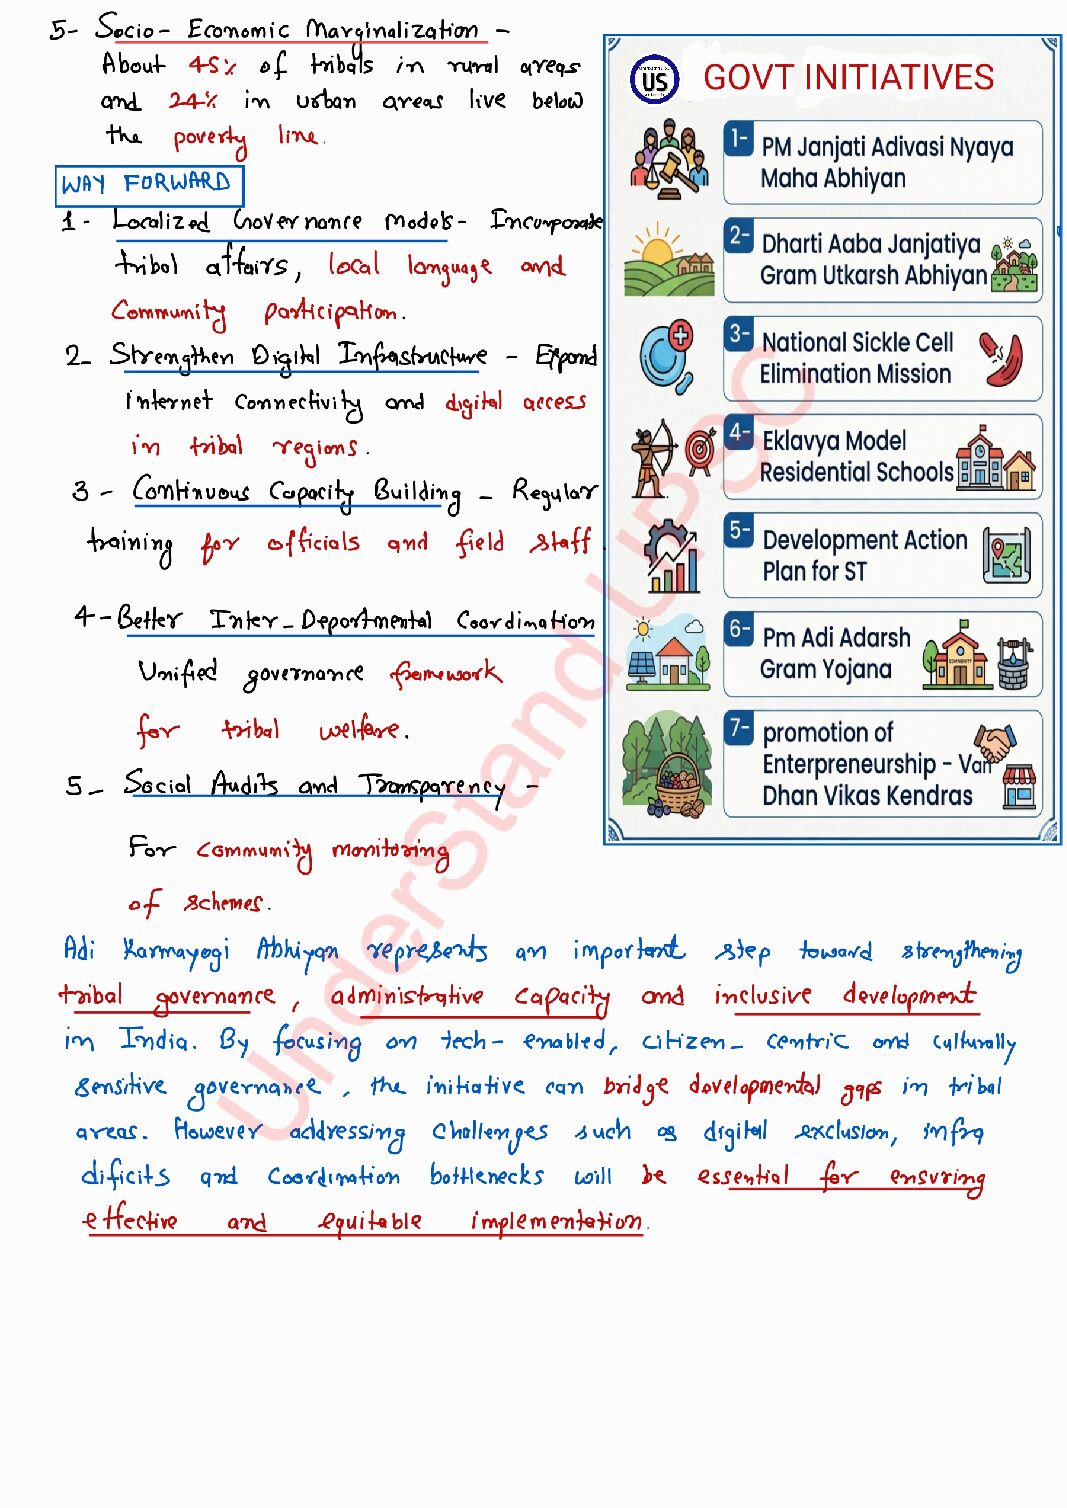 5- Socio- Economic Marginalization -
About 45% of tribals in rural areas
and 24% in urban areas live below
the poverty line.
WAY FORWARD
1- Localized Governance Models- Incorporate
tribal affairs, local language and
Community participation.
2- Strengthen Digital Infrastructure - Expand
internet connectivity and digital access
in tribal regions.
3- Continuous Capacity Building - Regular
training for officials and field staff.
4- Better Inter-Departmental Coordination
Unified governance framework
for tribal welfare.
5- Social Audits and Transparency -
For community monitoring
of schemes.
US
GOVT INITIATIVES
1- PM Janjati Adivasi Nyaya
Maha Abhiyan
2- Dharti Aaba Janjatiya
Gram Utkarsh Abhiyan
3- National Sickle Cell
Elimination Mission
4- Eklavya Model
Residential Schools
5- Development Action
Plan for ST
6- Pm Adi Adarsh
Gram Yojana
COMMUNITY
7- promotion of
Enterpreneurship - Van
Dhan Vikas Kendras
Adi Karmayogi Abhiyan represents an important step toward strengthening
tribal governance, administrative capacity and inclusive development
in India. By focusing on tech- enabled, citizen- centric and culturally
sensitive governance, the initiative can bridge developmental gaps in tribal
areas. However addressing challenges such as digital exclusion, infra
dificits and coordination bottlenecks will be essential for ensuring
effective and equitable implementation.
UnderStand UPSC